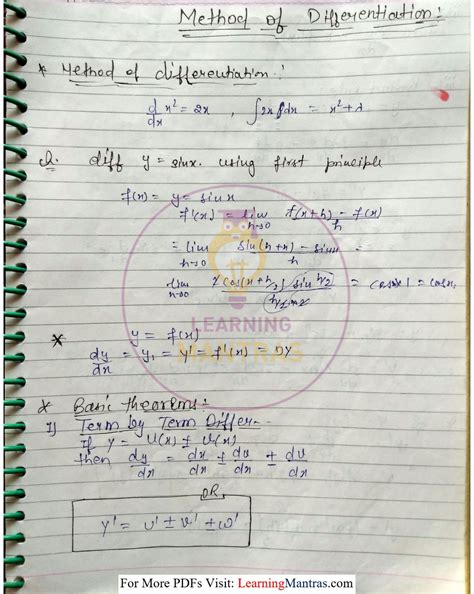 Method of Differentiation:
* Method of differentiation:
d/dx x² = 2x , ∫2x dx = x² + λ
Q. diff y = sinx. using first principle
f(x) = y = sinx
f'(x) = lim h→0 f(x+h) - f(x) / h
= lim h→0 sin(h+x) - sinx / h
lim h→0 2 cos(x + h/2) sin h/2 / h/2 × 2 = cosx × 1 = cosx,
LEARNING
MANTRAS
* y = f(x)
dy/dx = y₁ = y' = f'(x) = DY
* Basic theorems:
1) Term by Term Differ--
If y = U(x) ± V(x)
then dy/dx = du/dx ± dv/dx ± dv/dx
OR
y' = u' ± v' ± w'
For More PDFs Visit: LearningMantras.com